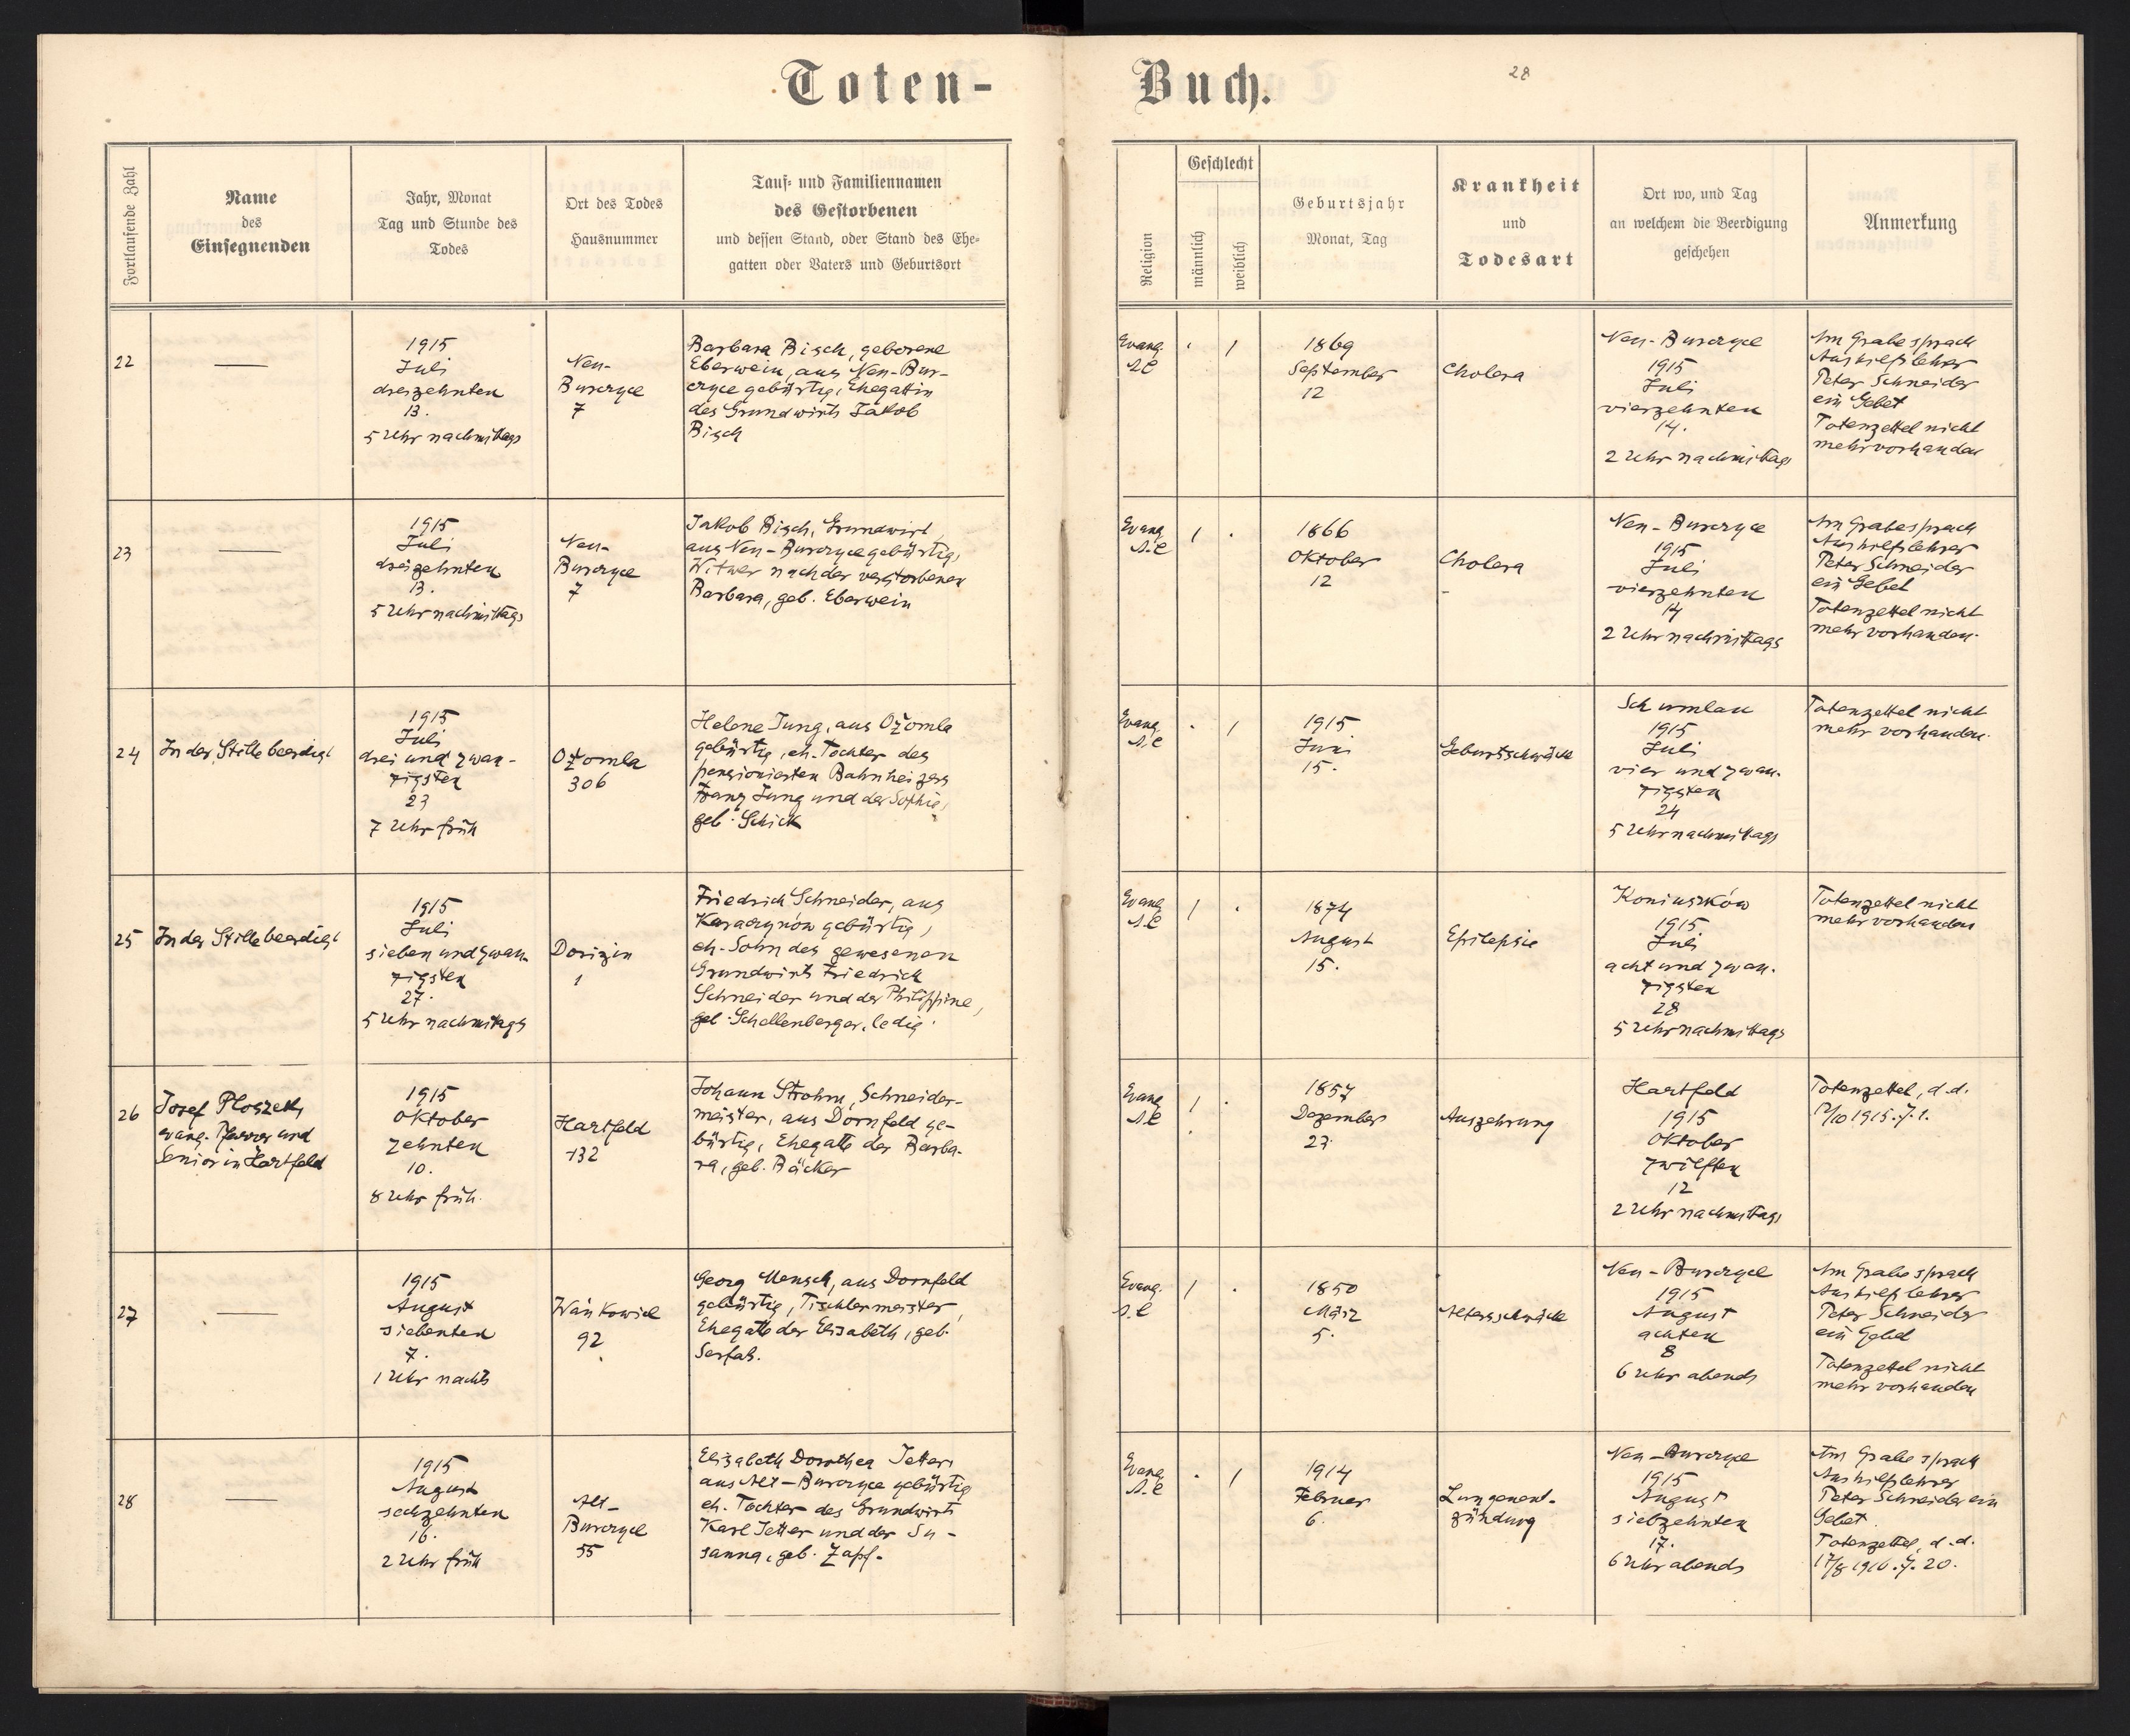 Toten-
Buch.
28
Fortlaufende Zahl
Name
des
Einsegnenden
Jahr, Monat
Tag und Stunde des
Todes
Ort des Todes
Hausnummer
Tauf- und Familiennamen
des Gestorbenen
und dessen Stand, oder Stand des Ehe-
gatten oder Vaters und Geburtsort
Religion
Geschlecht
männlich
weiblich
Geburtsjahr
Monat, Tag
Krankheit
und
Todesart
Ort wo, und Tag
an welchem die Beerdigung
geschehen
Anmerkung
22
1915
Juli
dreizehnten
13.
5 Uhr nachmittags
Neu-
Burczyce
7
Barbara Bisch, geborene
Eberwein, aus Neu-Bur-
czyce gebürtig, Ehegattin
des Grundwirts Jakob
Bisch
Evang.
A.C
1
1869
September
12
Cholera
Neu-Burczyce
1915
Juli
vierzehnten
14.
2 Uhr nachmittags
Am Grabe sprach
Aushilfslehrer
Peter Schneider
ein Gebet
Totenzettel nicht
mehr vorhanden
23
1915
Juli
dreizehnten
13.
5 Uhr nachmittags
Neu-
Burczyce
7
Jakob Bisch, Grundwirt
aus Neu-Burczyce gebürtig,
Witwer nach der verstorbenen
Barbara, geb. Eberwein
Evang
A.C
1
1866
Oktober
12
Cholera
Neu-Burczyce
1915
Juli
vierzehnten
14
2 Uhr nachmittags
Am Grabe sprach
Aushilfslehrer
Peter Schneider
ein Gebet
Totenzettel nicht
mehr vorhanden.
24
In der Stille beerdigt
1915
Juli
drei und zwan-
zigsten
23
7 Uhr früh
Ożomla
306
Helene Jung, aus Ożomla
gebürtig, eh. Tochter des
pensionierten Bahnheizers
Franz Jung und der Sophie,
geb. Schick
Evang
A.C
1
1915
Juni
15.
Geburtsschwäche
Schumlau
1915
Juli
vier und zwan-
zigsten
24
5 Uhr nachmittags
Totenzettel nicht
mehr vorhanden.
25
In der Stille beerdigt
1915
Juli
sieben und zwan-
zigsten
27.
5 Uhr nachmittags
Dorizin
1
Friedrich Schneider, aus
Karaczynów gebürtig,
eh. Sohn des gewesenen
Grundwirts Friedrich
Schneider und der Philippine,
geb. Schellenberger, ledig.
Evang
A.C
1
1874
August
15.
Epilepsie
Koniuszków
1915
Juli
acht und zwan-
zigsten
28
5 Uhr nachmittags
Totenzettel nicht
mehr vorhanden
26
Josef Ploszek,
evang. Pfarrer und
Senior in Hartfeld
1915
Oktober
zehnten
10.
8 Uhr früh.
Hartfeld
132
Johann Strohm, Schneider-
meister, aus Dornfeld ge-
bürtig, Ehegatte der Barba-
ra, geb. Bäcker
Evang
A.C
1
1857
Dezember
23.
Auszehrung
Hartfeld
1915
Oktober
zwölften
12
2 Uhr nachmittags
Totenzettel, d.d.
1915. Z. 1.
27
1915
August
siebenten
7.
1 Uhr nachts
Wańkowice
92
Georg Mensch, aus Dornfeld
gebürtig, Tischlermeister,
Ehegatte der Elisabeth, geb.
Serfas.
Evang.
A.C
1
1850
März
5.
Altersschwäche
Neu-Burczyce
1915
August
achten
8
6 Uhr abends
Am Grabe sprach
Aushilfslehrer
Peter Schneider
ein Gebet
Totenzettel nicht
mehr vorhanden
28
1915
August
sechzehnten
16.
2 Uhr früh
Alt-
Burczyce
55
Elisabeth Dorothea Jetter,
aus Alt-Burczyce gebürtig
eh. Tochter des Grundwirts
Karl Jetter und der Su-
sanna, geb. Zapf.
Evang
A.C
1
1914
Februar
6.
Lungenent-
zündung
Neu-Burczyce
1915
August
siebzehnten
17.
6 Uhr abends
Am Grabe sprach
Aushilfslehrer
Peter Schneider ein
Gebet.
Totenzettel, d.d.
17/8 1916. Z. 20.